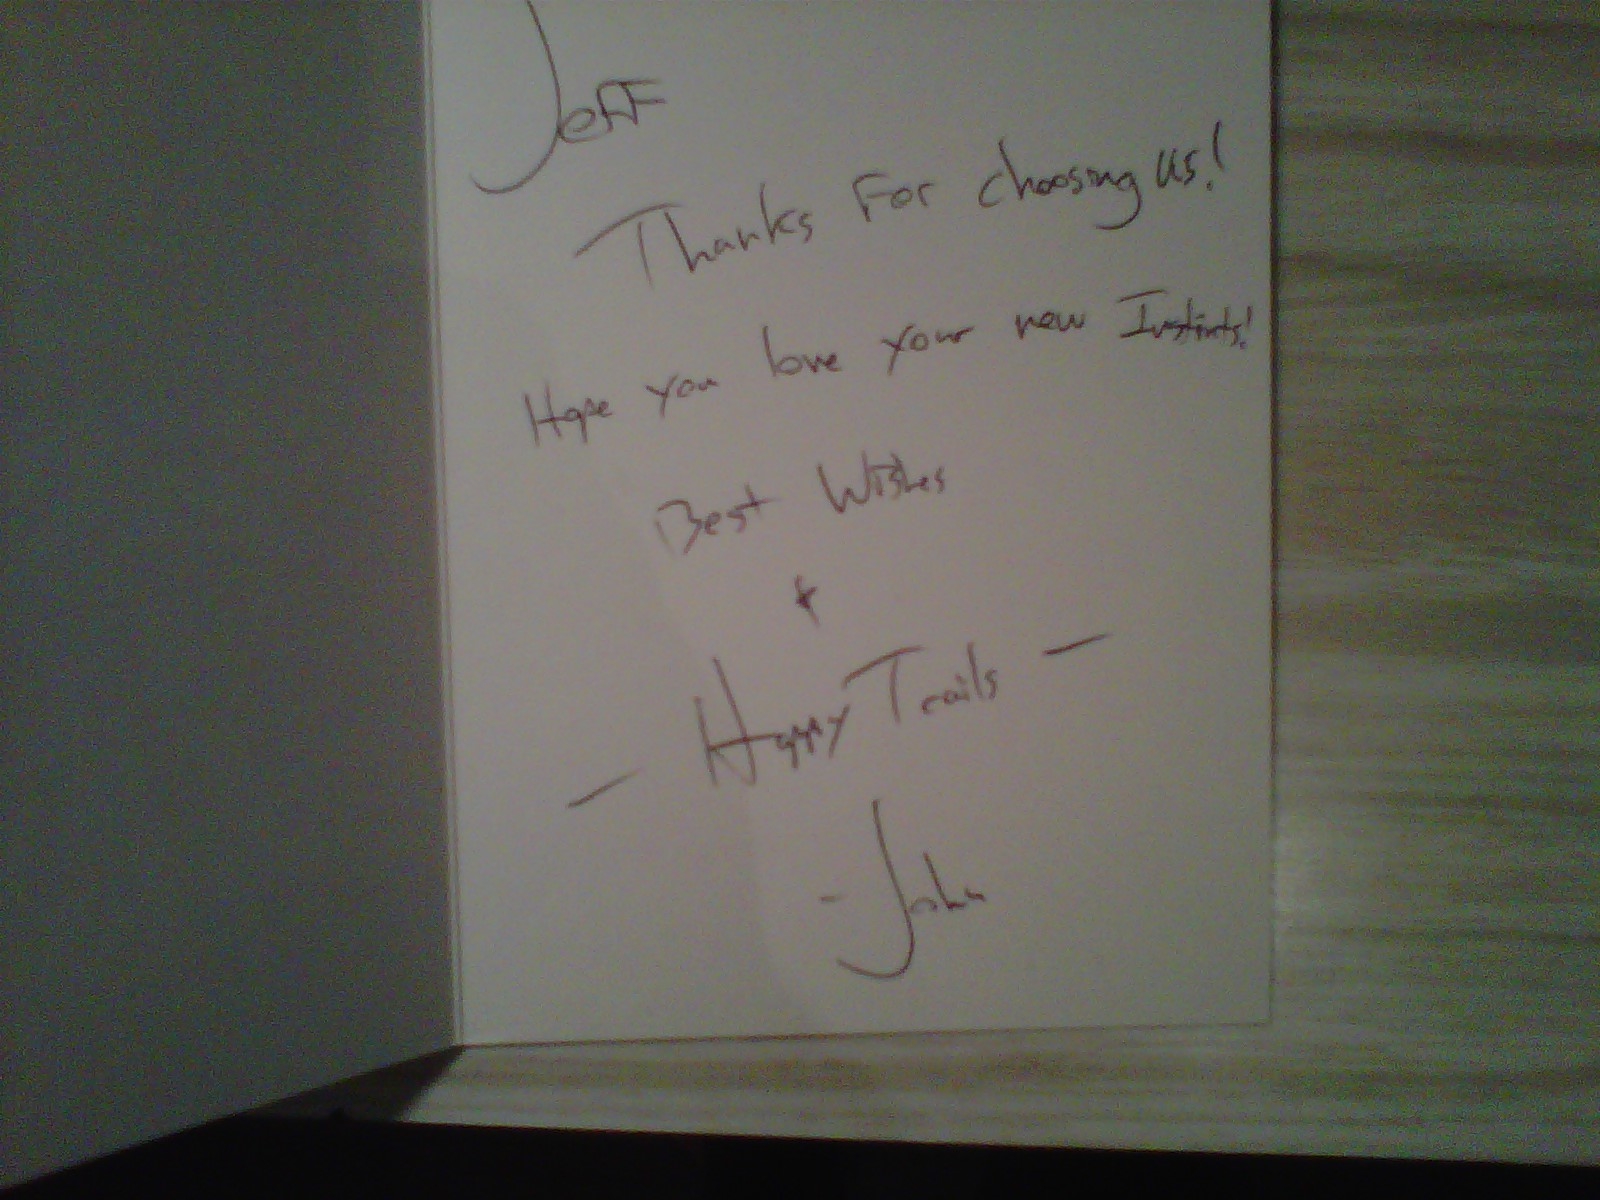 Jeff
Thanks For choosing us!
Hope you love your new Instincts!
Best Wishes
+
- Happy Trails -
- John